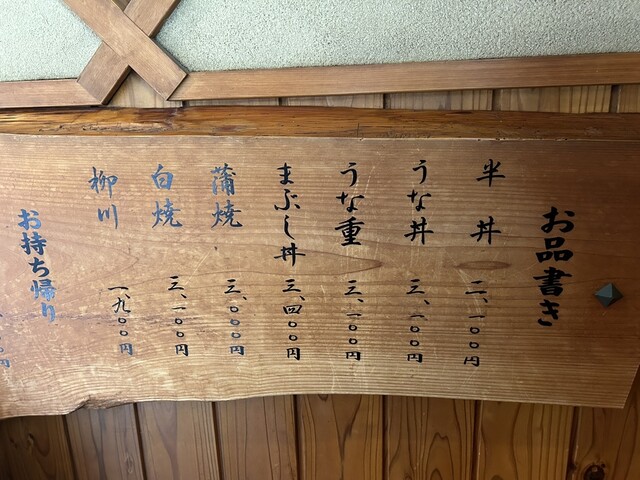 お品書き
半丼 二、一〇〇円
うな丼 三、一〇〇円
うな重 三、一〇〇円
まぶし丼 三、四〇〇円
蒲焼 三、〇〇〇円
白焼 三、一〇〇円
柳川 一、九〇〇円
お持ち帰り
〇円